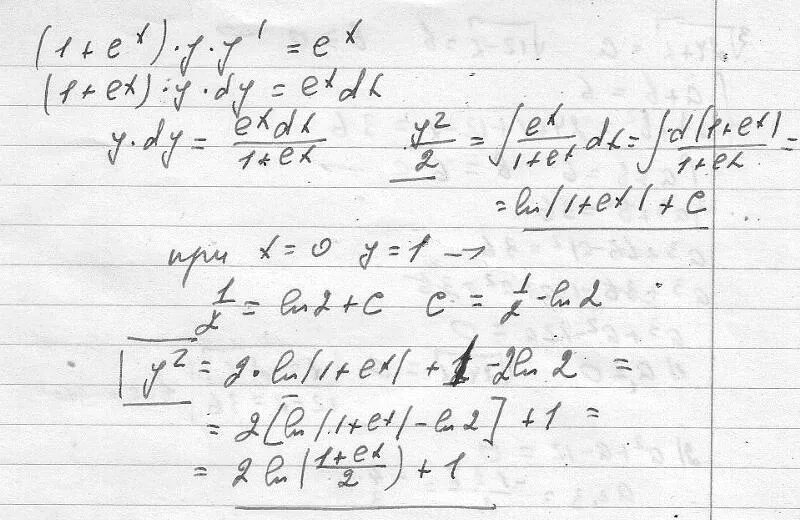 (1+e^x)·y·y' = e^x
(1+e^x)·y·dy = e^x dx
y·dy = e^x dx / 1+e^x   y²/2 = ∫ e^x / 1+e^x dx = ∫ d(1+e^x) / 1+e^x =
= ln|1+e^x| + C
при x=0 y=1 →
1/2 = ln2+C   C = 1/2 - ln2
y² = 2·ln|1+e^x| + 1 - 2ln2 =
= 2[ln|1+e^x| - ln2] + 1 =
= 2ln(1+e^x / 2) + 1